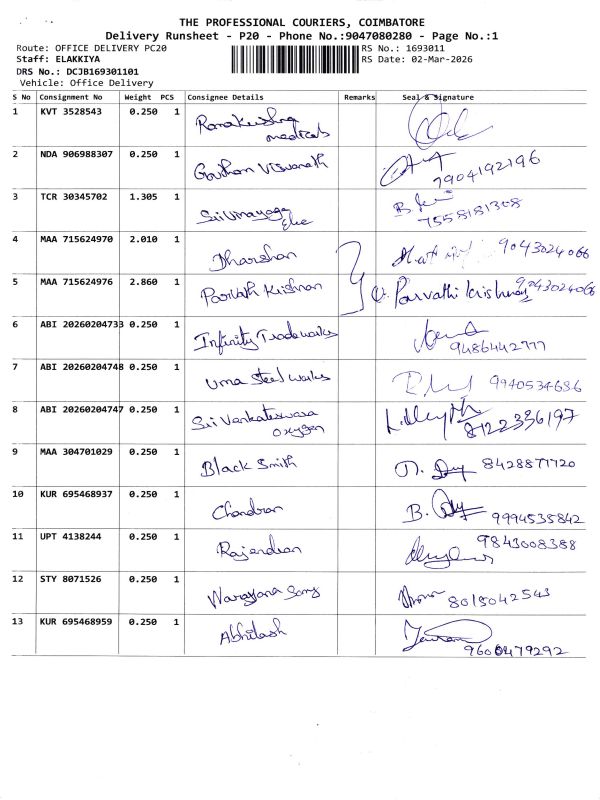 THE PROFESSIONAL COURIERS, COIMBATORE
Delivery Runsheet - P20 - Phone No.:9047080280 - Page No.:1
Route: OFFICE DELIVERY PC20
RS No.: 1693011
Staff: ELAKKIYA
RS Date: 02-Mar-2026
DRS No.: DCJB169301101
Vehicle: Office Delivery
S No Consignment No Weight PCS Consignee Details Remarks Seal & Signature
1 KVT 3528543 0.250 1 Ramakrishna medicals
2 NDA 906988307 0.250 1 Gowtham Viswanath 7904192196
3 TCR 30345702 1.305 1 Sri Vinayaga Elec 7558181308
4 MAA 715624970 2.010 1 Dharshan 9043024066
5 MAA 715624976 2.860 1 Parvath Krishnan Parvathi Krishnan 9043024066
6 ABI 20260204733 0.250 1 Infinity Tradewaks 9486442777
7 ABI 20260204748 0.250 1 Uma Steel waks 9940534636
8 ABI 20260204747 0.250 1 Sri Venkateswara oxygen 8122336197
9 MAA 304701029 0.250 1 Black Smith 8428877720
10 KUR 695468937 0.250 1 Chandran B. 9994535842
11 UPT 4138244 0.250 1 Rajendran 9843008388
12 STY 8071526 0.250 1 Narayana Samy 8015042543
13 KUR 695468959 0.250 1 Abhilash 9600479292